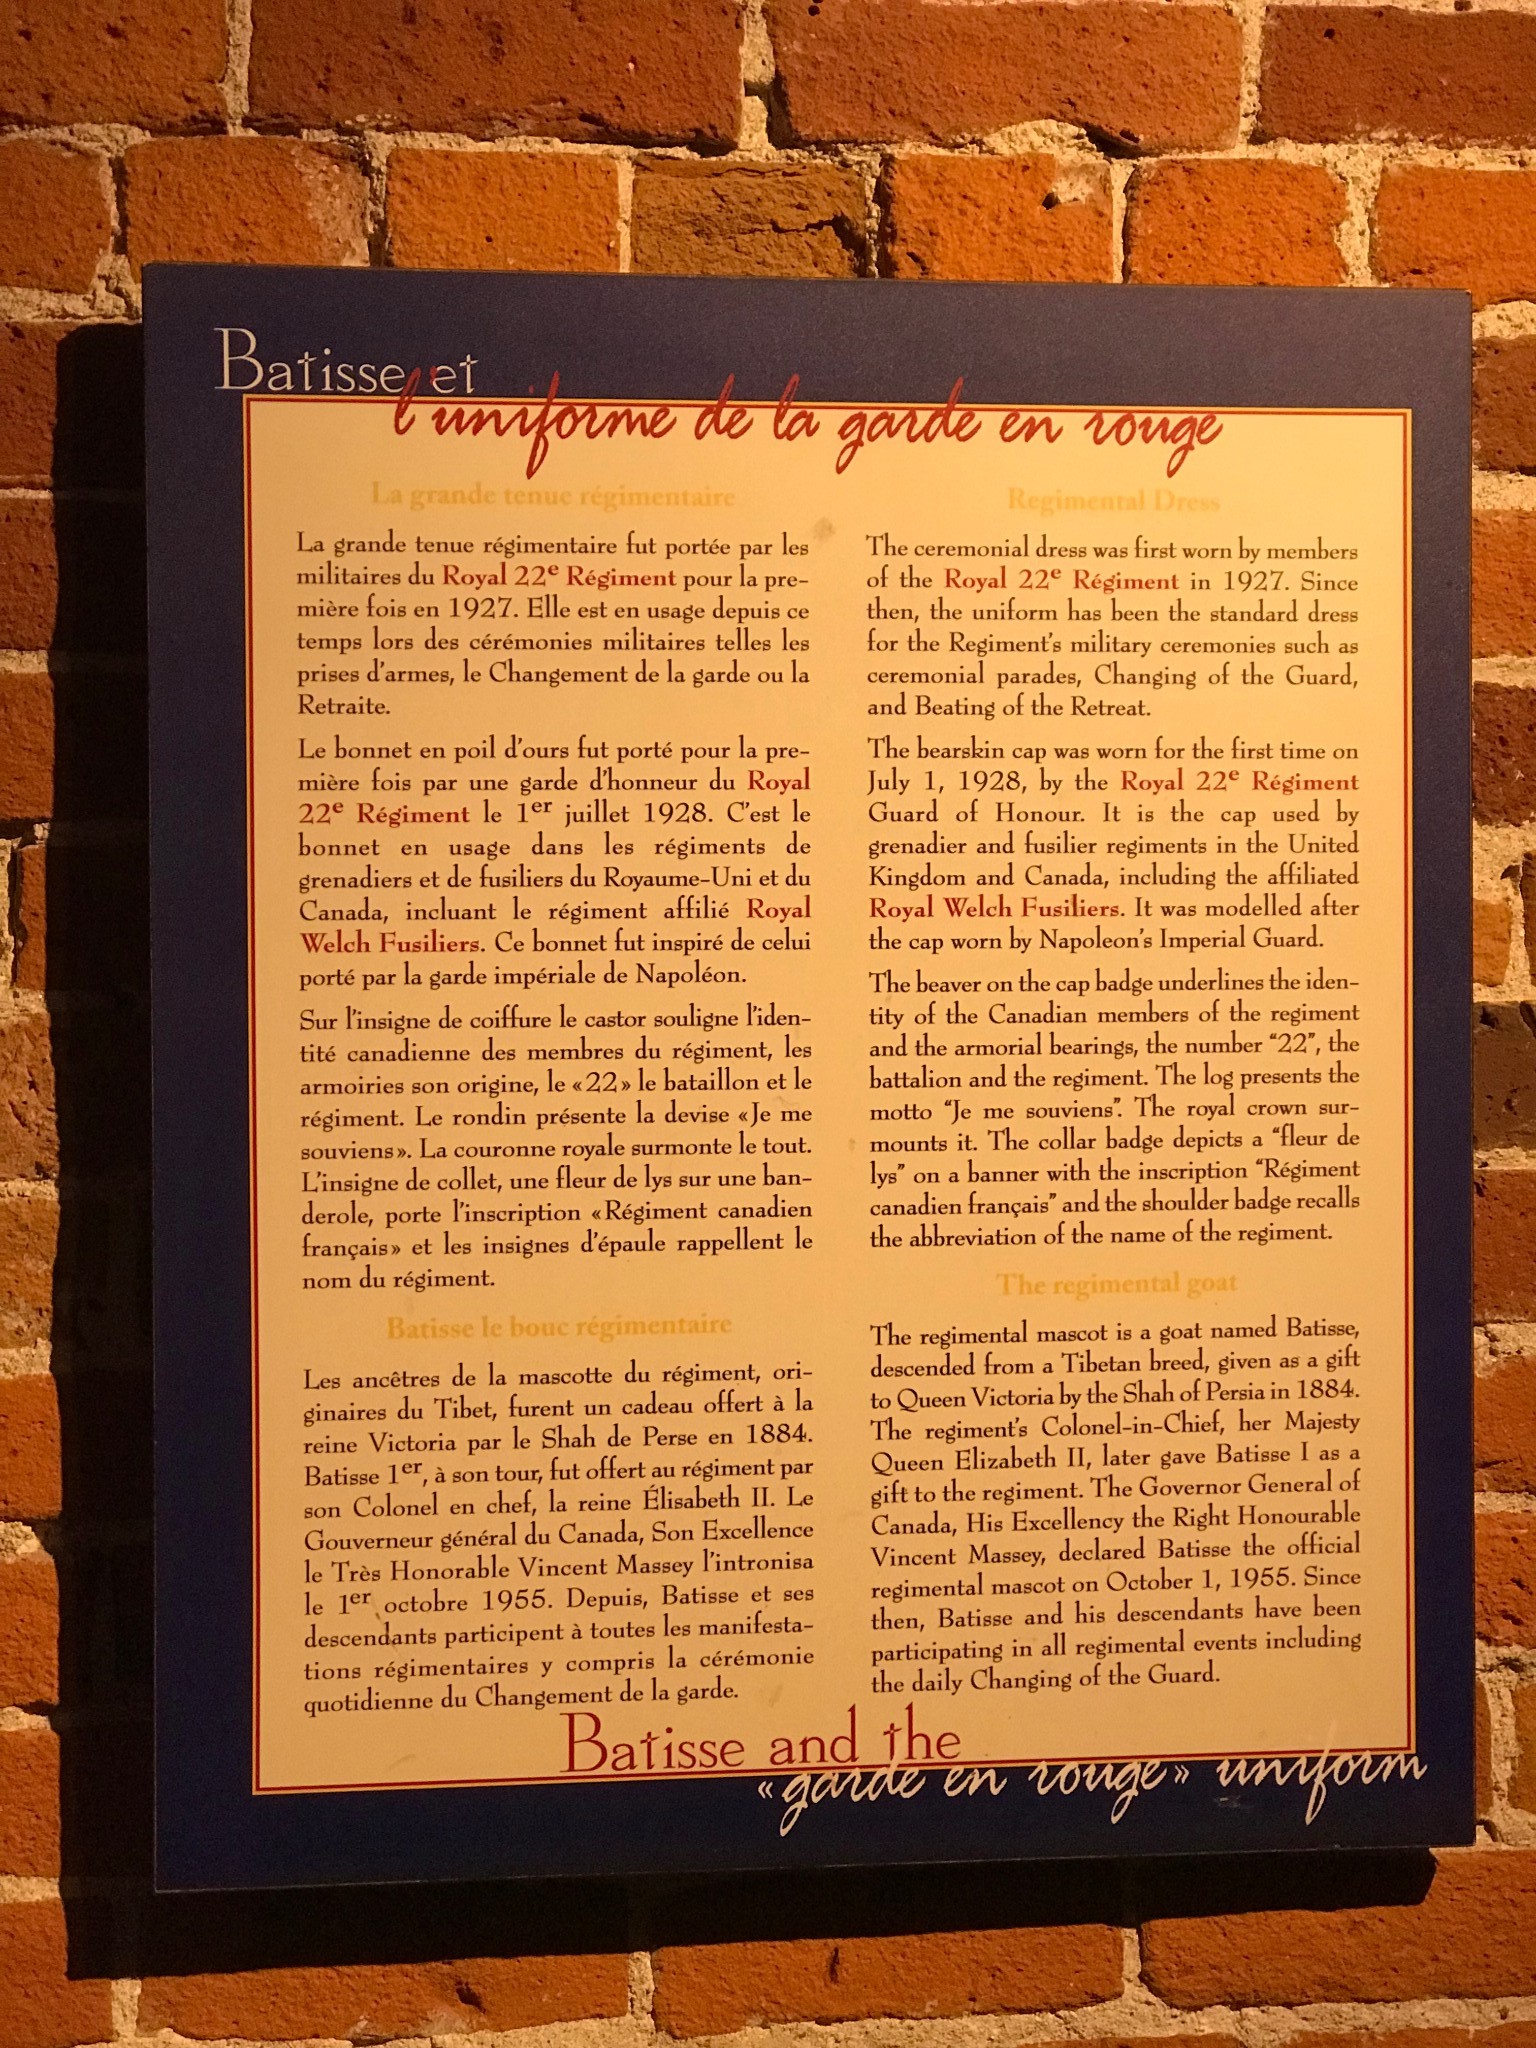 Batisse et
l'uniforme de la garde en rouge
La grande tenue régimentaire
La grande tenue régimentaire fut portée par les
militaires du Royal 22e Régiment pour la pre-
mière fois en 1927. Elle est en usage depuis ce
temps lors des cérémonies militaires telles les
prises d'armes, le Changement de la garde ou la
Retraite.
Le bonnet en poil d'ours fut porté pour la pre-
mière fois par une garde d'honneur du Royal
22e Régiment le 1er juillet 1928. C'est le
bonnet en usage dans les régiments de
grenadiers et de fusiliers du Royaume-Uni et du
Canada, incluant le régiment affilié Royal
Welch Fusiliers. Ce bonnet fut inspiré de celui
porté par la garde impériale de Napoléon.
Sur l'insigne de coiffure le castor souligne l'iden-
tité canadienne des membres du régiment, les
armoiries son origine, le «22» le bataillon et le
régiment. Le rondin présente la devise «Je me
souviens». La couronne royale surmonte le tout.
L'insigne de collet, une fleur de lys sur une ban-
derole, porte l'inscription «Régiment canadien
français» et les insignes d'épaule rappellent le
nom du régiment.
Batisse le bouc régimentaire
Les ancêtres de la mascotte du régiment, ori-
ginaires du Tibet, furent un cadeau offert à la
reine Victoria par le Shah de Perse en 1884.
Batisse 1er, à son tour, fut offert au régiment par
son Colonel en chef, la reine Élisabeth II. Le
Gouverneur général du Canada, Son Excellence
le Très Honorable Vincent Massey l'intronisa
le 1er octobre 1955. Depuis, Batisse et ses
descendants participent à toutes les manifesta-
tions régimentaires y compris la cérémonie
quotidienne du Changement de la garde.
Regimental Dress
The ceremonial dress was first worn by members
of the Royal 22e Régiment in 1927. Since
then, the uniform has been the standard dress
for the Regiment's military ceremonies such as
ceremonial parades, Changing of the Guard,
and Beating of the Retreat.
The bearskin cap was worn for the first time on
July 1, 1928, by the Royal 22e Régiment
Guard of Honour. It is the cap used by
grenadier and fusilier regiments in the United
Kingdom and Canada, including the affiliated
Royal Welch Fusiliers. It was modelled after
the cap worn by Napoleon's Imperial Guard.
The beaver on the cap badge underlines the iden-
tity of the Canadian members of the regiment
and the armorial bearings, the number "22", the
battalion and the regiment. The log presents the
motto "Je me souviens". The royal crown sur-
mounts it. The collar badge depicts a "fleur de
lys" on a banner with the inscription "Régiment
canadien français" and the shoulder badge recalls
the abbreviation of the name of the regiment.
The regimental goat
The regimental mascot is a goat named Batisse,
descended from a Tibetan breed, given as a gift
to Queen Victoria by the Shah of Persia in 1884.
The regiment's Colonel-in-Chief, her Majesty
Queen Elizabeth II, later gave Batisse I as a
gift to the regiment. The Governor General of
Canada, His Excellency the Right Honourable
Vincent Massey, declared Batisse the official
regimental mascot on October 1, 1955. Since
then, Batisse and his descendants have been
participating in all regimental events including
the daily Changing of the Guard.
Batisse and the
«garde en rouge» uniform